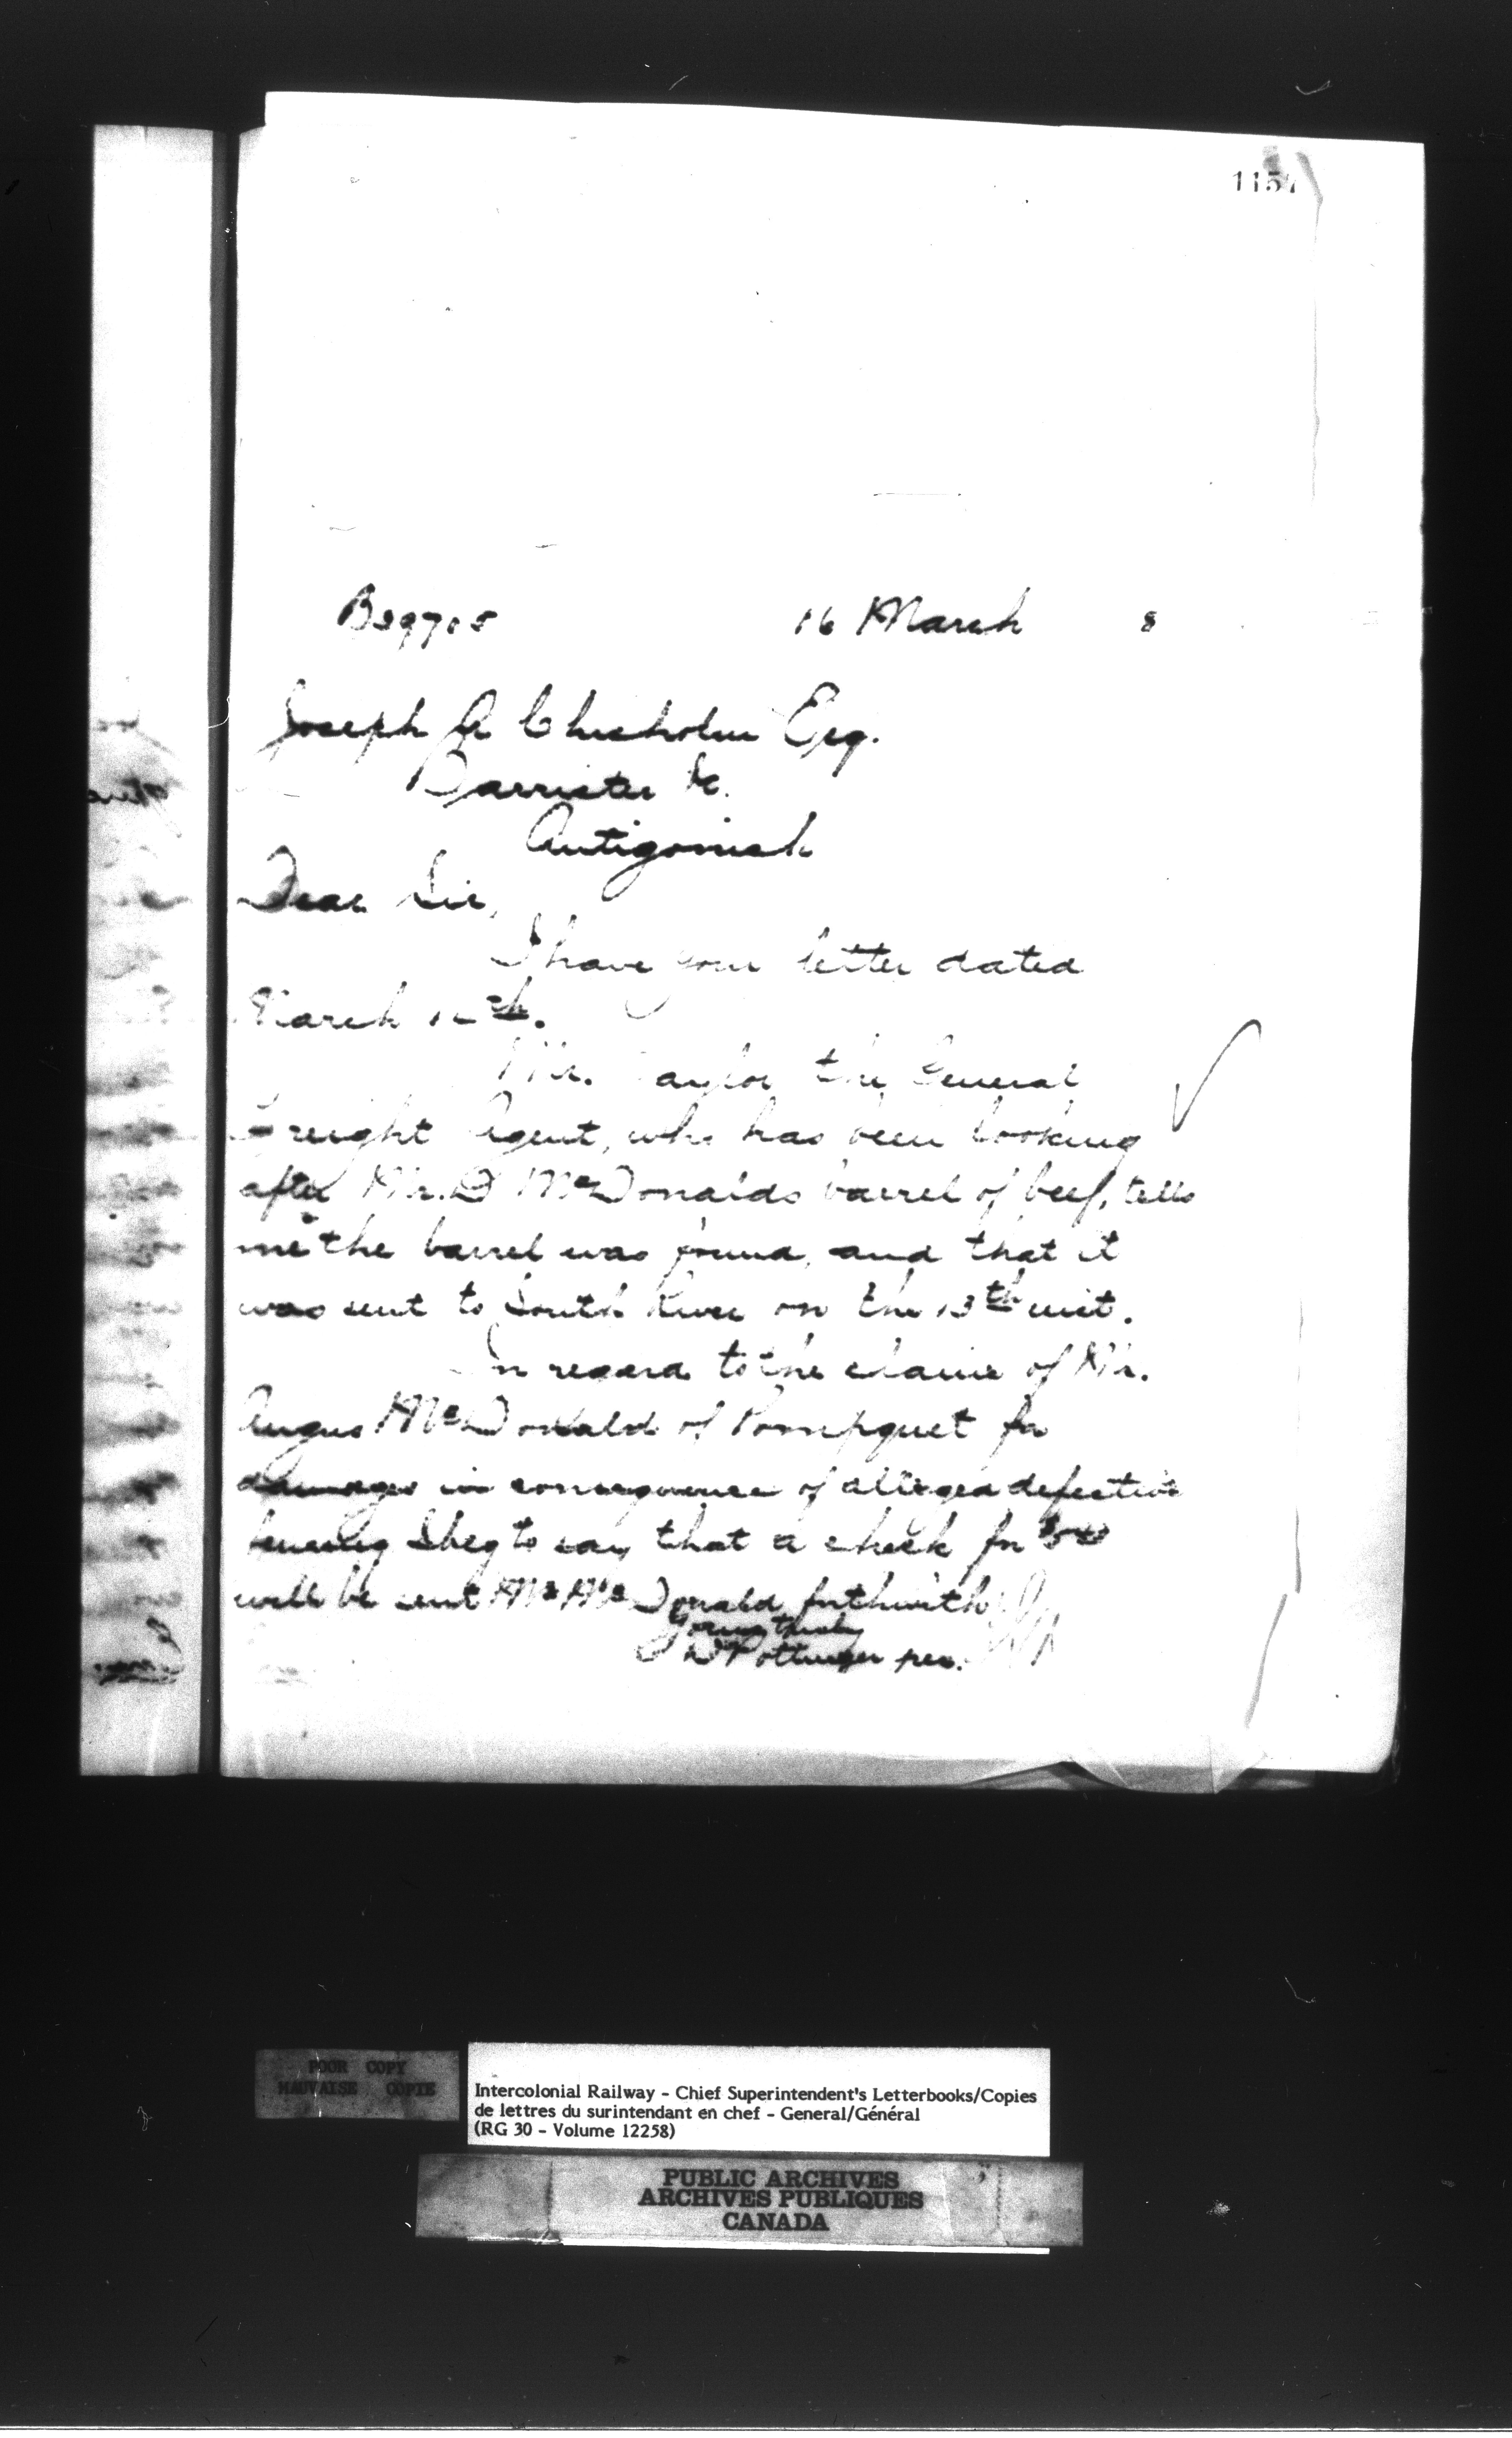 115
B39705 16 March 8
Joseph A Chisholm Esq.
Barrister &c.
Antigonish
Dear Sir,
I have your letter dated
March 12th.
Mr. Taylor the General
Freight Agent, who has been looking
after Mr. D McDonalds barrel of beef, tells
me the barrel was found, and that it
was sent to South River on the 13th inst.
In regard to the claim of Mr.
Angus McDonald of Pomquet for
damages in consequence of alleged defective
fencing I beg to say that a check for
will be sent Mr McDonald forthwith
Yours truly
D Pottinger per.
POOR COPY
MAUVAISE COPIE
Intercolonial Railway - Chief Superintendent's Letterbooks/Copies
de lettres du surintendant en chef - General/Général
(RG 30 - Volume 12258)
PUBLIC ARCHIVES
ARCHIVES PUBLIQUES
CANADA